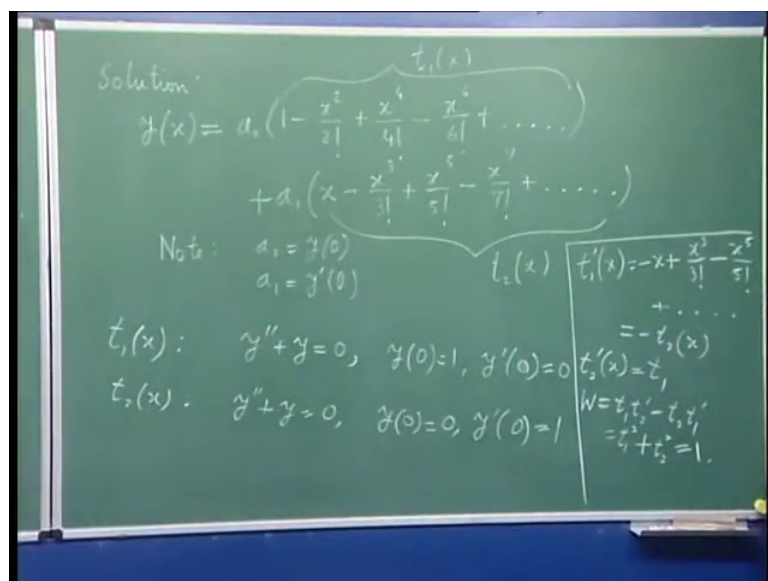 t₁(x)
Solution:
y(x) = a₀(1 - x²/2! + x⁴/4! - x⁶/6! + .....)
+ a₁(x - x³/3! + x⁵/5! - x⁷/7! + ......)
t₂(x)
Note: a₀ = y(0)
a₁ = y'(0)
t₁(x): y'' + y = 0, y(0)=1, y'(0)=0
t₂(x). y'' + y = 0, y(0)=0, y'(0)=1
t₁'(x) = -x + x³/3! - x⁵/5!
+ ....
= -t₂(x)
t₂'(x) = t₁
W = t₁t₂' - t₂t₁'
= t₁² + t₂² = 1.